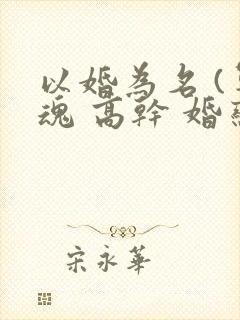 以婚為名(
魂 高幹 婚
宋永華